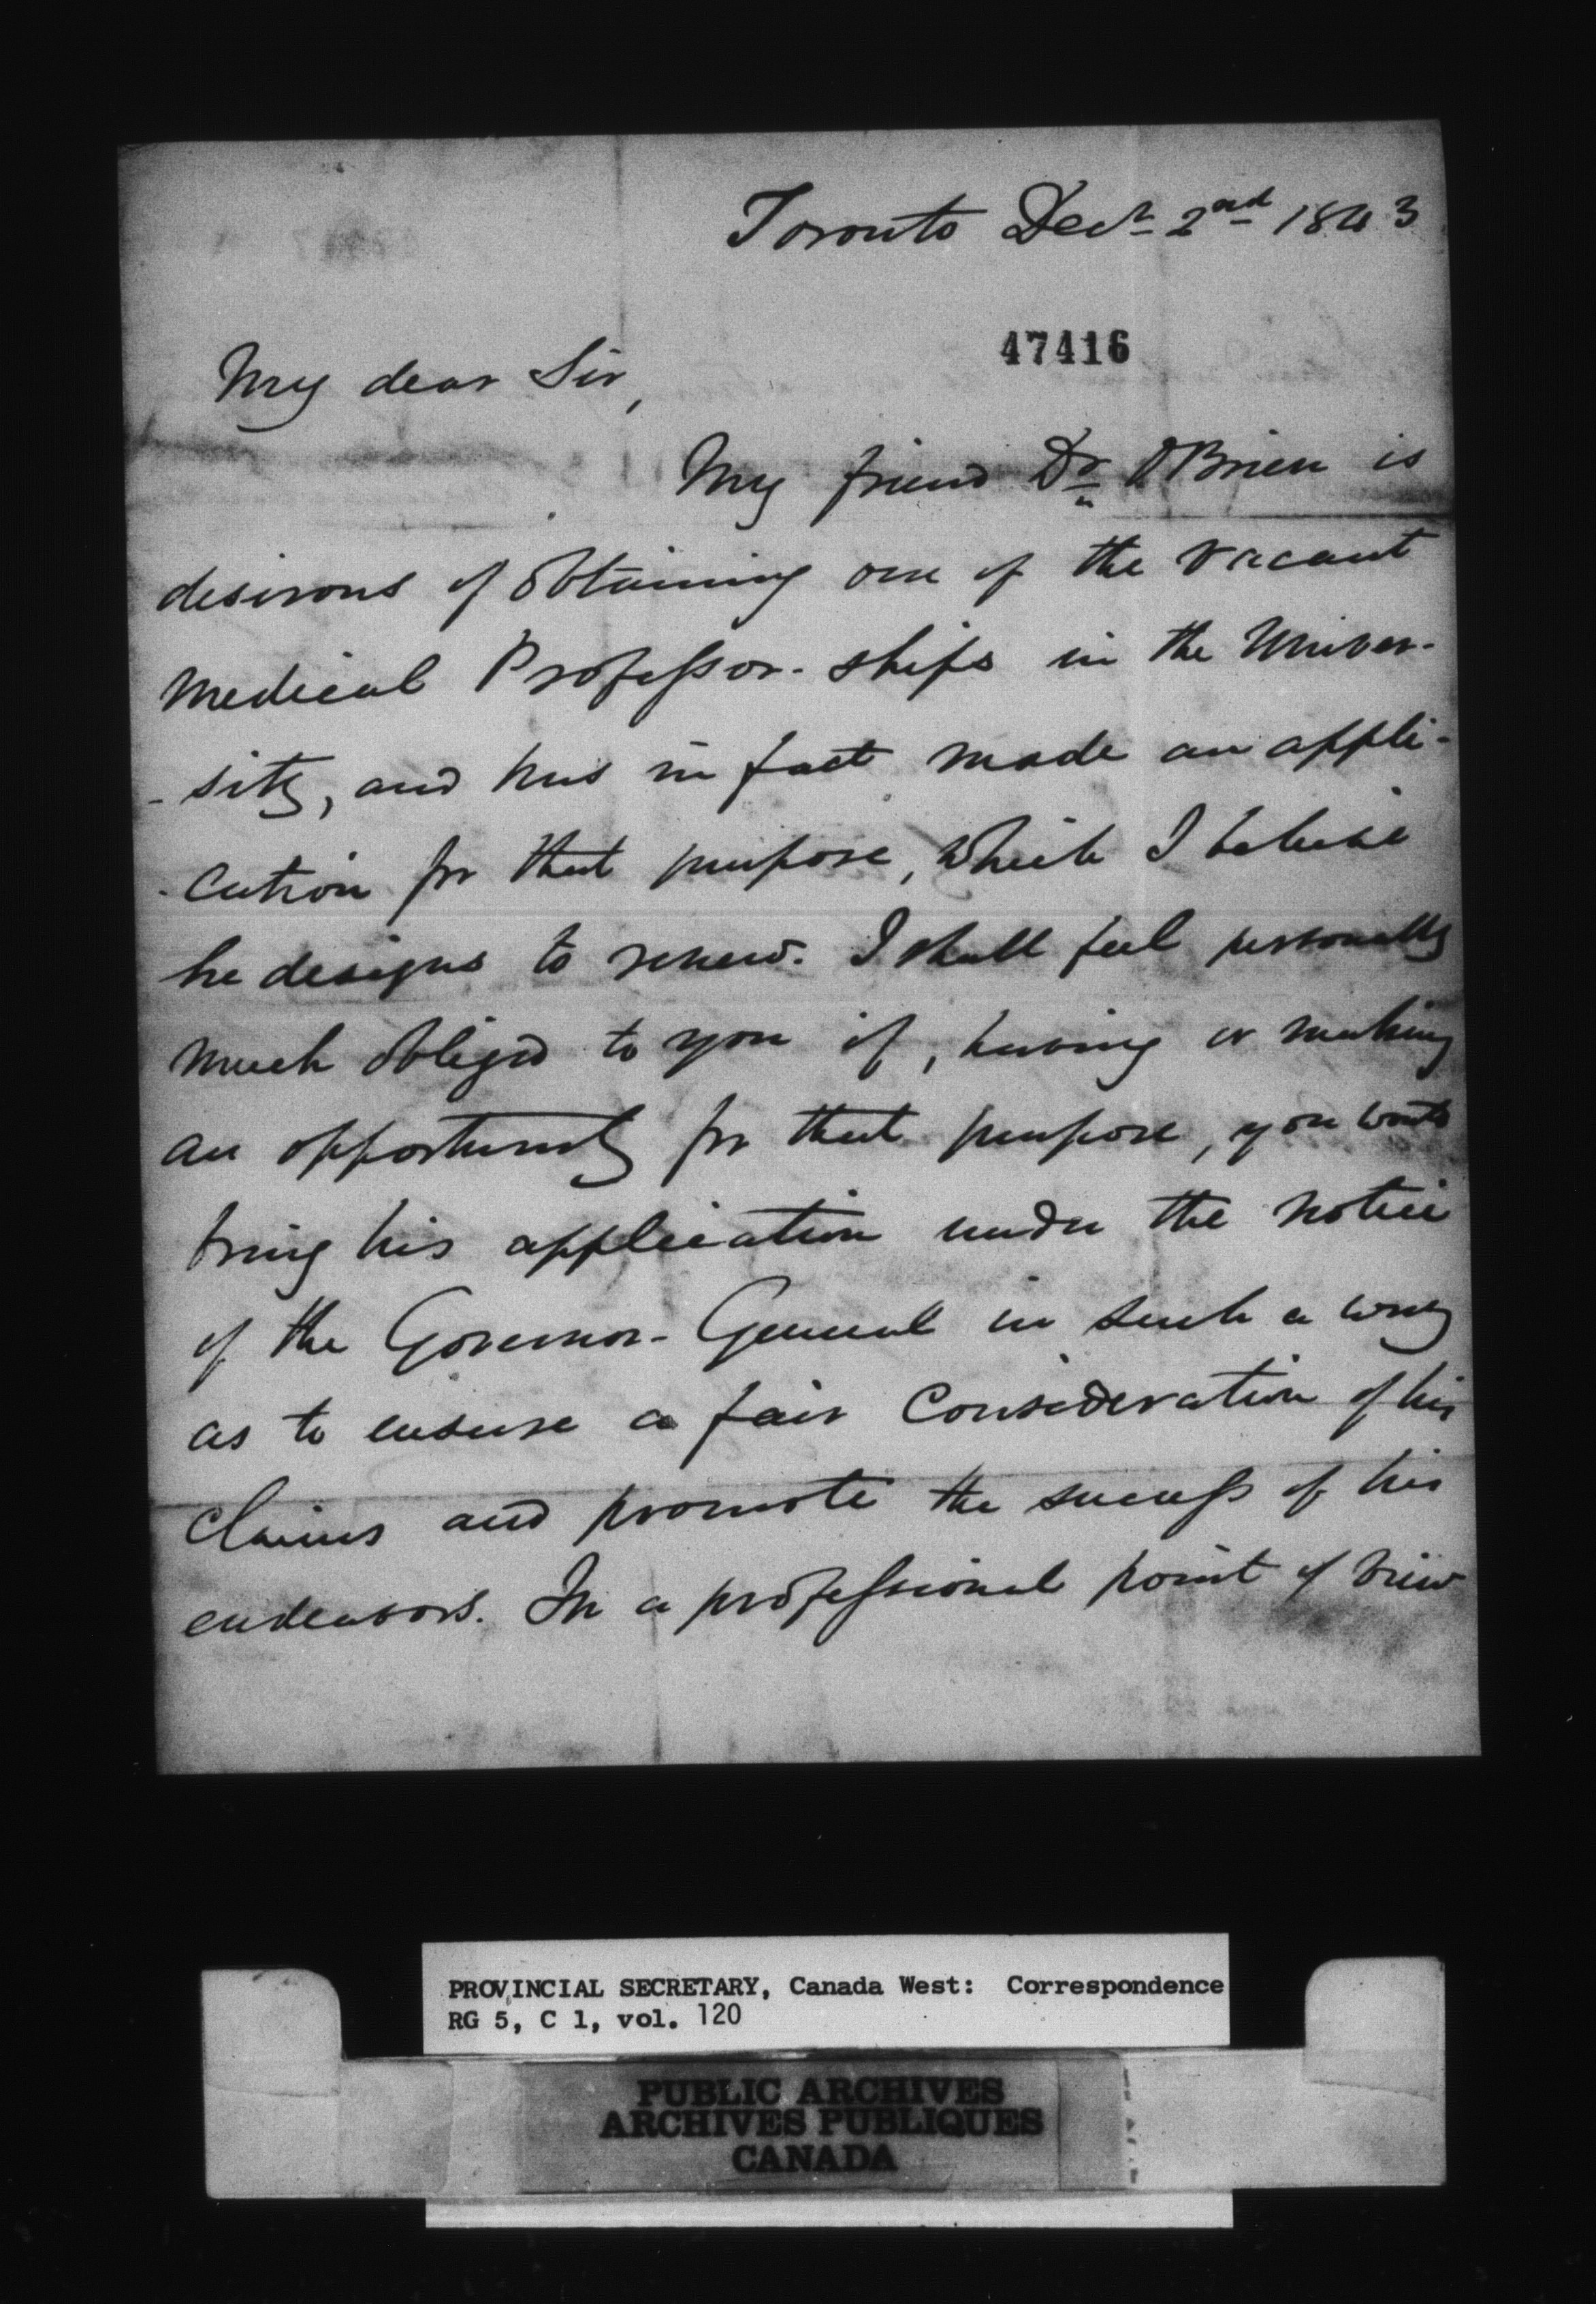 Toronto Decr 2nd 1843
47416
My dear Sir,
My friend Dr OBrien is
desirous of obtaining one of the vacant
Medical Professor-ships in the Univer-
-sity, and has in fact made an appli-
-cation for that purpose, which I believe
he designs to renew. I shall feel personally
much obliged to you if, having or making
an opportunity for that purpose, you would
bring his application under the notice
of the Governor-General in such a way
as to ensure a fair consideration of his
claims and promote the success of his
endeavors. In a professional point of view
PROVINCIAL SECRETARY, Canada West: Correspondence
RG 5, C 1, vol. 120
PUBLIC ARCHIVES
ARCHIVES PUBLIQUES
CANADA